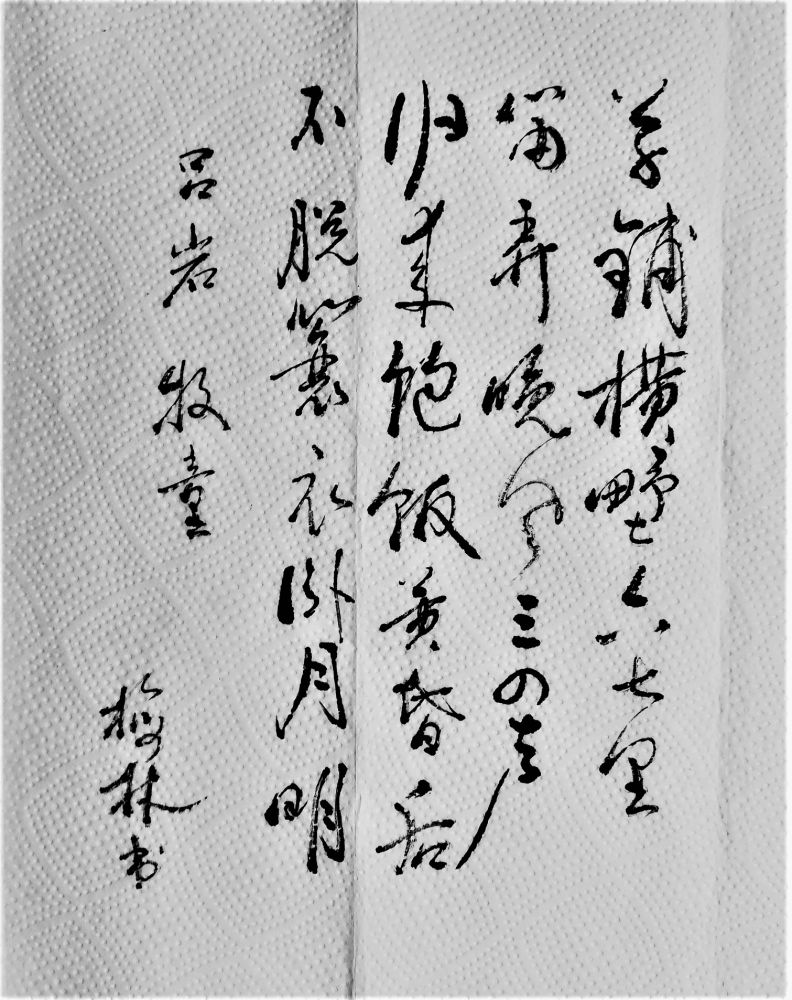 草铺横野六七里
笛弄晚风三四声
归来饱饭黄昏后
不脱蓑衣卧月明
吕岩 牧童
梅林书